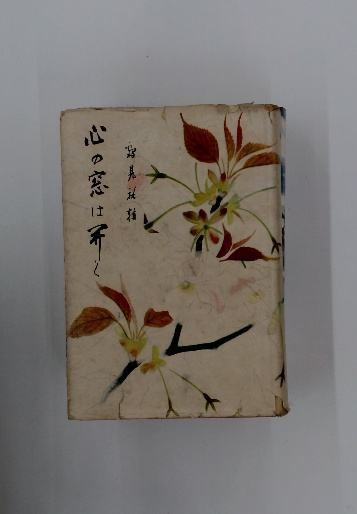 心の窓は開く
鶴見祐輔